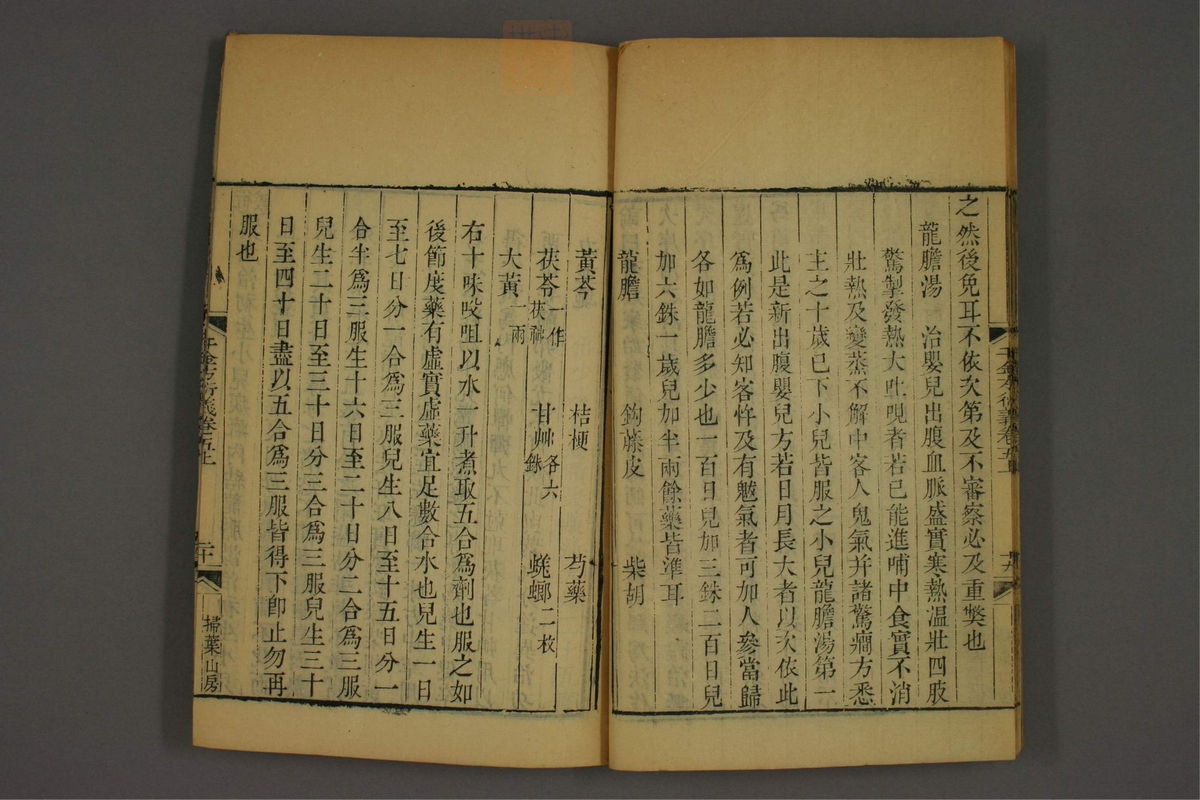 之然後免耳不依次第及不審察必及重獘也
龍膽湯　治嬰兒出腹血脈盛實寒熱溫壯四肢
驚掣發熱大吐哯者若已能進哺中食實不消
壯熱及變蒸不解中客人鬼氣并諸驚癎方悉
主之十歲已下小兒皆服之小兒龍膽湯第一
此是新出腹嬰兒方若日月長大者以次依此
爲例若必知客忤及有魃氣者可加人參當歸
各如龍膽多少也一百日兒加三銖二百日兒
加六銖一歲兒加半兩餘藥皆準耳
龍膽　鈎藤皮　柴胡
黃芩　桔梗　芍藥
茯苓一作茯神　甘艸各六銖　蜣螂二枚
大黃一兩
右十味㕮咀以水一升煮取五合爲劑也服之如
後節度藥有虛實虛藥宜足數合水也兒生一日
至七日分一合爲三服兒生八日至十五日分一
合半爲三服生十六日至二十日分二合爲三服
兒生二十日至三十日分三合爲三服兒生三十
日至四十日盡以五合爲三服皆得下卽止勿再
服也
千金方衍義卷五上
二十
掃葉山房